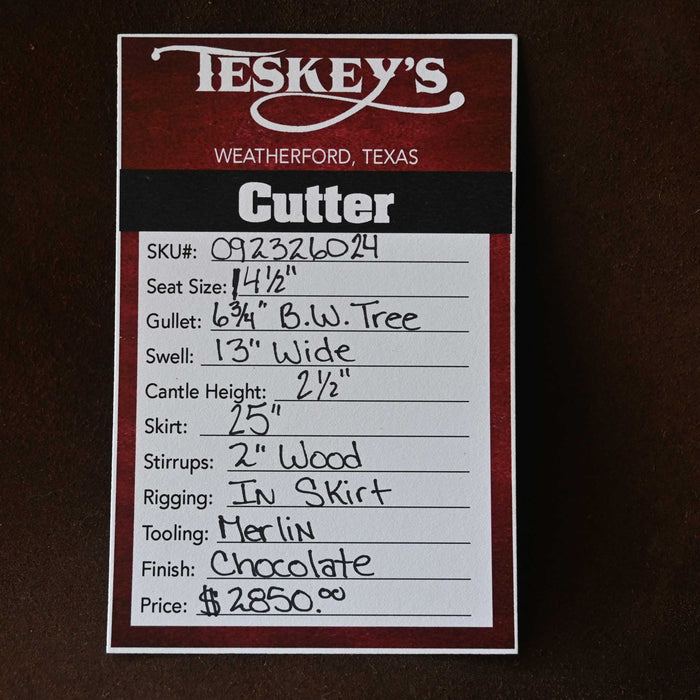 TESKEY'S
WEATHERFORD, TEXAS
Cutter
SKU#: 092326024
Seat Size: 14 1/2"
Gullet: 6 3/4" B.W. Tree
Swell: 13" Wide
Cantle Height: 2 1/2"
Skirt: 25"
Stirrups: 2" Wood
Rigging: In Skirt
Tooling: Merlin
Finish: Chocolate
Price: $2850.00